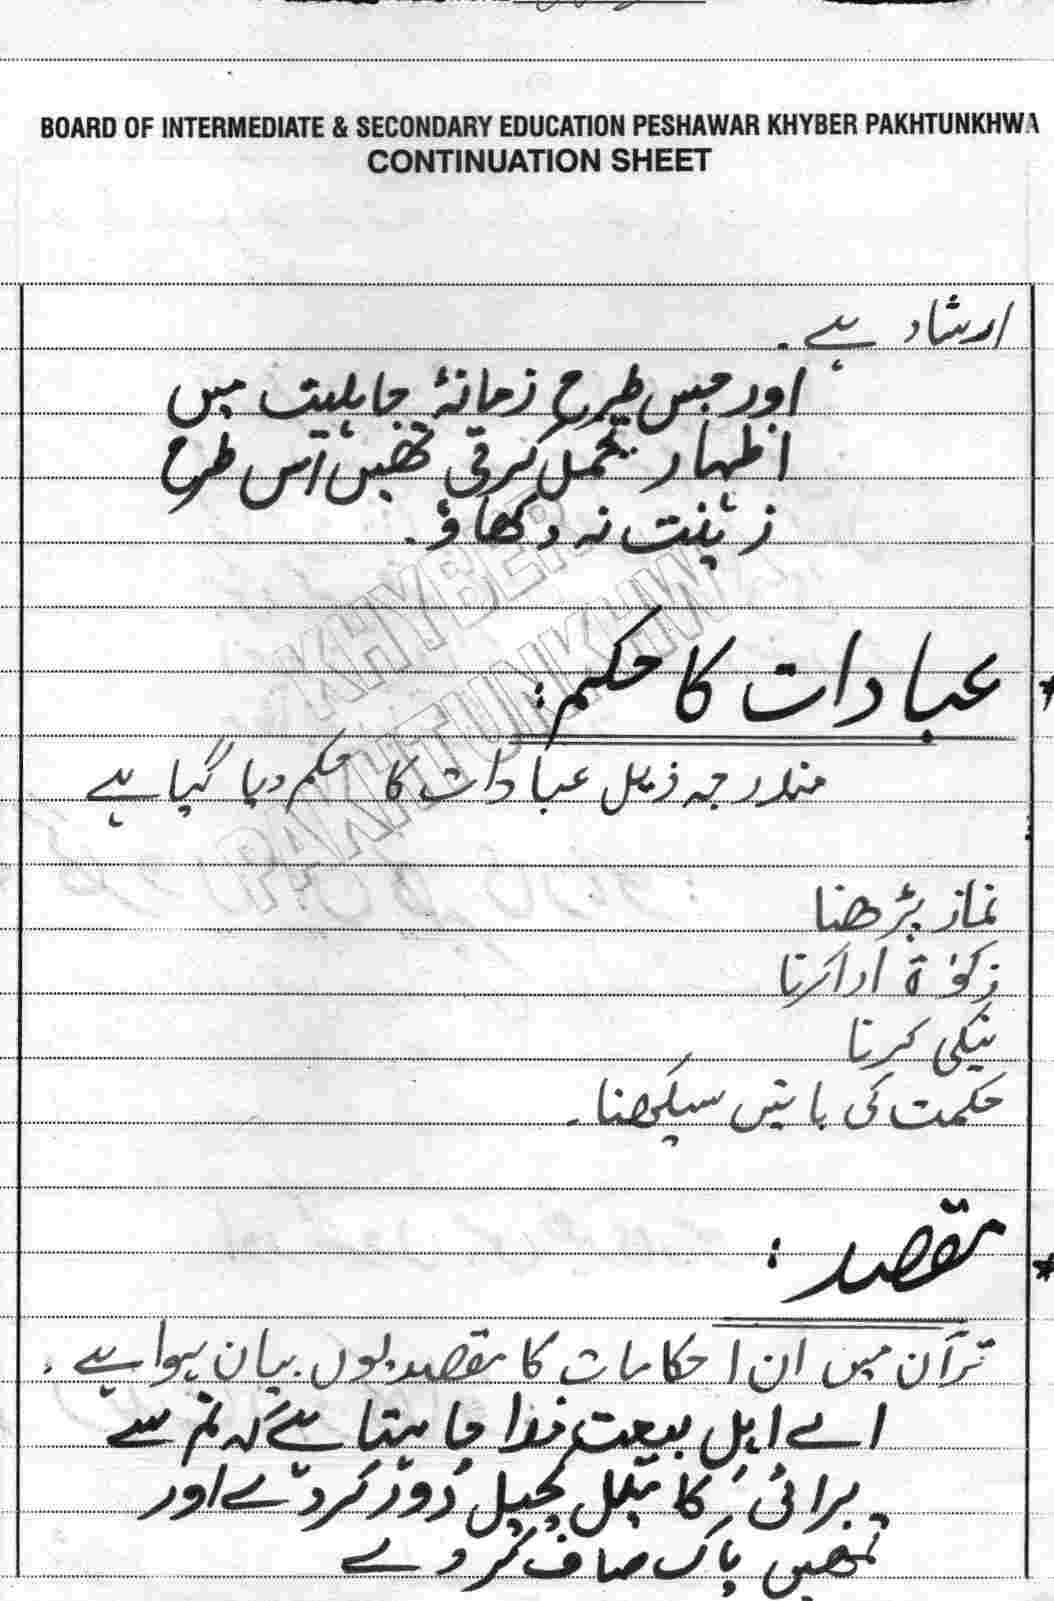 BOARD OF INTERMEDIATE & SECONDARY EDUCATION PESHAWAR KHYBER PAKHTUNKHWA
CONTINUATION SHEET
ارشاد ہے۔
اور جس طرح زمانۂ جاہلیت میں
اظہار تجمل کرتی تھیں اس طرح
زینت نہ دکھاؤ۔
* عبادات کا حکم:
مندرجہ ذیل عبادات کا حکم دیا گیا ہے
نماز پڑھنا
زکوٰۃ ادا کرنا
نیکی کرنا
حکمت کی باتیں سیکھنا۔
* مقصد:
قرآن میں ان احکامات کا مقصد یوں بیان ہوا ہے۔
اے اہل بیت خدا چاہتا ہے کہ تم سے
برائی کا میل کچیل دُور کر دے اور
تمھیں پاک صاف کر دے
KHYBER
PAKHTUNKHWA